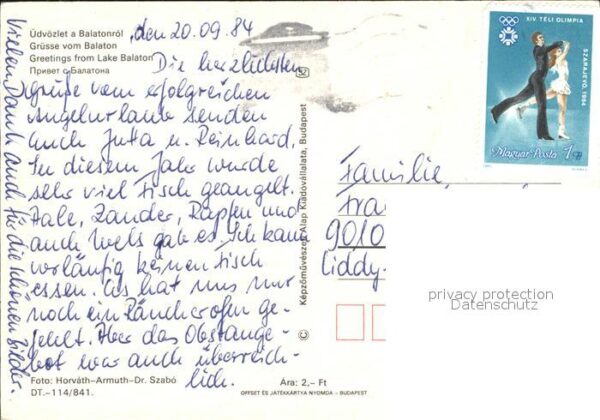 Üdvözlet a Balatonról
Grüsse vom Balaton
Greetings from Lake Balaton
Привет с Балатона
den 20.09.84
Die herzlichsten
Grüße vom erfolgreichen
Angelurlaub senden
Euch Jutta u. Reinhard.
In diesem Jahr wurde
sehr viel Fisch geangelt.
Aale, Zander, Rapfen und
auch Wels gab es. Ich kann
vorläufig keinen Fisch
essen. Es hat uns nur
noch ein Räucherofen ge-
fehlt. Aber das Obstange-
bot war auch überreich-
lich.
Vielen Dank auch für die schönen Bilder.
Foto: Horváth–Armuth–Dr. Szabó
DT.–114/841.
Ára: 2,– Ft
OFFSET ÉS JÁTÉKKÁRTYA NYOMDA – BUDAPEST
© Képzőművészeti Alap Kiadóvállalata, Budapest
XIV. TÉLI OLIMPIA
SZARAJEVO, 1984
Magyar Posta 1 Ft
Familie
Fra
9010
Liddy-
privacy protection
Datenschutz